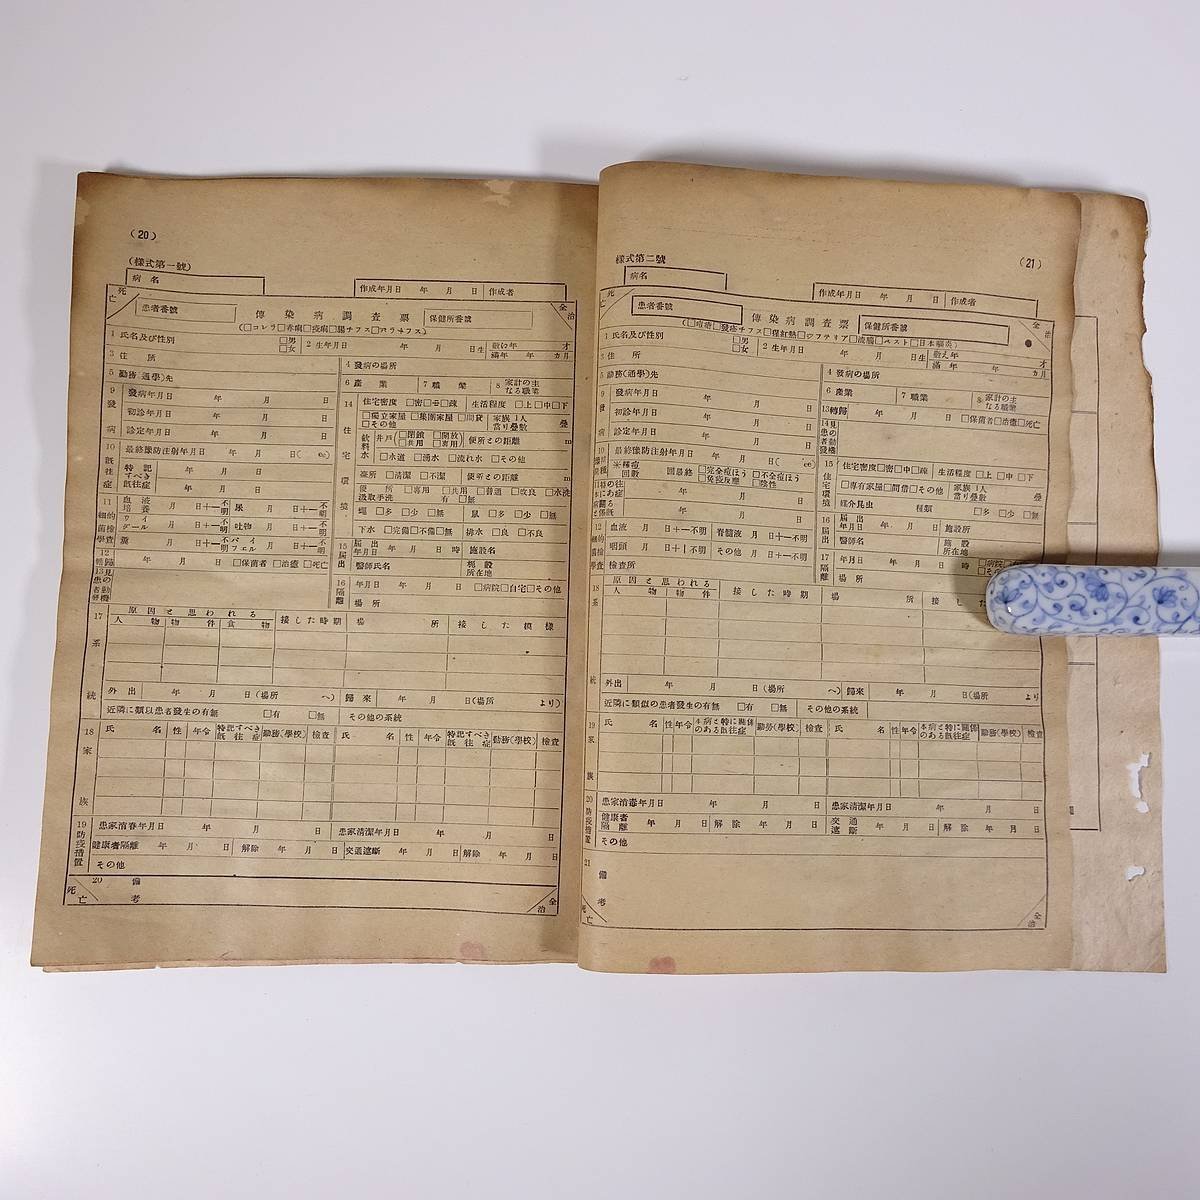 (20)
(樣式第一號)
病名
作成年月日 年 月 日 作成者
死亡
全治
患者番號
傳染病調査票
保健所番號
(□コレラ□赤痢□疫痢□腸チフス□パラチフス)
1 氏名及び性別 □男 □女
2 生年月日 年 月 日生
滿年 年 カ月
3 住所
4 發病の場所
5 勤務(通學)先
6 產業
7 職業
8 家計の主なる職業
9 發病
發病年月日 年 月 日
初診年月日 年 月 日
診定年月日 年 月 日
10 既往症
最終豫防注射年月日 年 月 日( cc)
特記すべき既往症
年 月 日
年 月 日
11 細菌學的檢査
血液培養 月 日+−不明 尿 月 日+−不明
月 日+−不明 吐物 月 日+−不明
月 日+−不明
12 轉歸 年 月 日 □保菌者 □治癒 □死亡
13 患者發見の動機
14 住宅環境
住宅密度 □密□中□疎 生活程度 □上□中□下
□獨立家屋 □集團家屋 □間貸 □その他
家族1人當り疊數 疊
飲料水 井戶(□閉鎖 □開放 □共用 □專用) 便所との距離 m
□水道 □湧水 □流れ水 □その他
臺所 □清潔 □不潔 便所との距離 m
便所 □專用 □共用 □普通 □改良 □水洗
汲取手洗 有 □無
蠅 □多 □少 □無 鼠 □多 □少 □無
下水 □完備□不備□無 排水 □良 □不良
15 届出
届出年月日 年 月 日 時 施設名
醫師氏名
所在地
16 隔離
年月日 年 月 日 □病院□自宅□その他
場所
17 系統
原因と思われる
人物 物件 食物 接した時期 場所 接した模樣
外出 年 月 日(場所 へ) 歸來 年 月 日(場所 より)
近隣に類以患者發生の有無 □有 □無 その他の系統
18 家族
氏名 性 年令 特記すべき既往症 勤務(學校) 檢査 氏名 性 年令 特記すべき既往症 勤務(學校) 檢査
19 防疫措置
患家消毒年月日 年 月 日 患家清潔年月日 年 月 日
健康者隔離 年 月 日 解除 年 月 日 交通遮斷 年 月 日 解除 年 月 日
その他
20 備考
死亡
全治
樣式第二號
(21)
病名
作成年月日 年 月 日 作成者
死亡
全治
患者番號
傳染病調査票
保健所番號
(□痘瘡□發疹チフス□猩紅熱□ヂフテリア□流腦□ペスト□日本腦炎)
1 氏名及び性別 □男 □女
2 生年月日 年 月 日生
數え年 才
滿年 年 カ月
3 住所
4 發病の場所
5 勤務(通學)先
6 產業
7 職業
8 家計の主なる職業
9 發病
發病年月日 年 月 日
初診年月日 年 月 日
診定年月日 年 月 日
10
最終豫防注射年月日 年 月 日( cc)
※種痘回數 回 最終 □完全痘ほう □不全痘ほう □免疫反應 □陰性
年 月 日
年 月 日
12 細菌學的檢査
血液 月 日+−不明 脊髓液 月 日+−不明
咽頭 月 日+−不明 その他 月 日+−不明
檢査所
13 轉歸 年 月 日 □保菌者□治癒□死亡
14 患者發見の動機
15 住宅環境
住宅密度□密□中□疎 生活程度 □上 □中 □下
□專有家屋□間借□その他 家族1人當り疊數 疊
媒介昆虫 種類 □多□少□無
16 届出
届出年月日 年 月 日 施設所
醫師名 施設所在地
17 隔離
年月日 年 月 日 時 □病院
場所
18 系統
原因と思われる
人物 物件 接した時期 場所
外出 年 月 日(場所 へ) 歸來 年 月 日(場所 より
近隣に類似の患者發生の有無 □有 □無 その他の系統
19 家族
氏名 性 年令 本病と特に關係のある既往症 勤務(學校) 檢査 氏名 性 年令 本病と特に關係のある既往症 勤務(學校) 檢査
20 防疫措置
患家消毒年月日 年 月 日 患家清潔年月日 年 月 日
健康者隔離 年 月 日 解除 年 月 日 交通遮斷 年 月 日 解除 年 月 日
その他
21 備考
死亡
全治